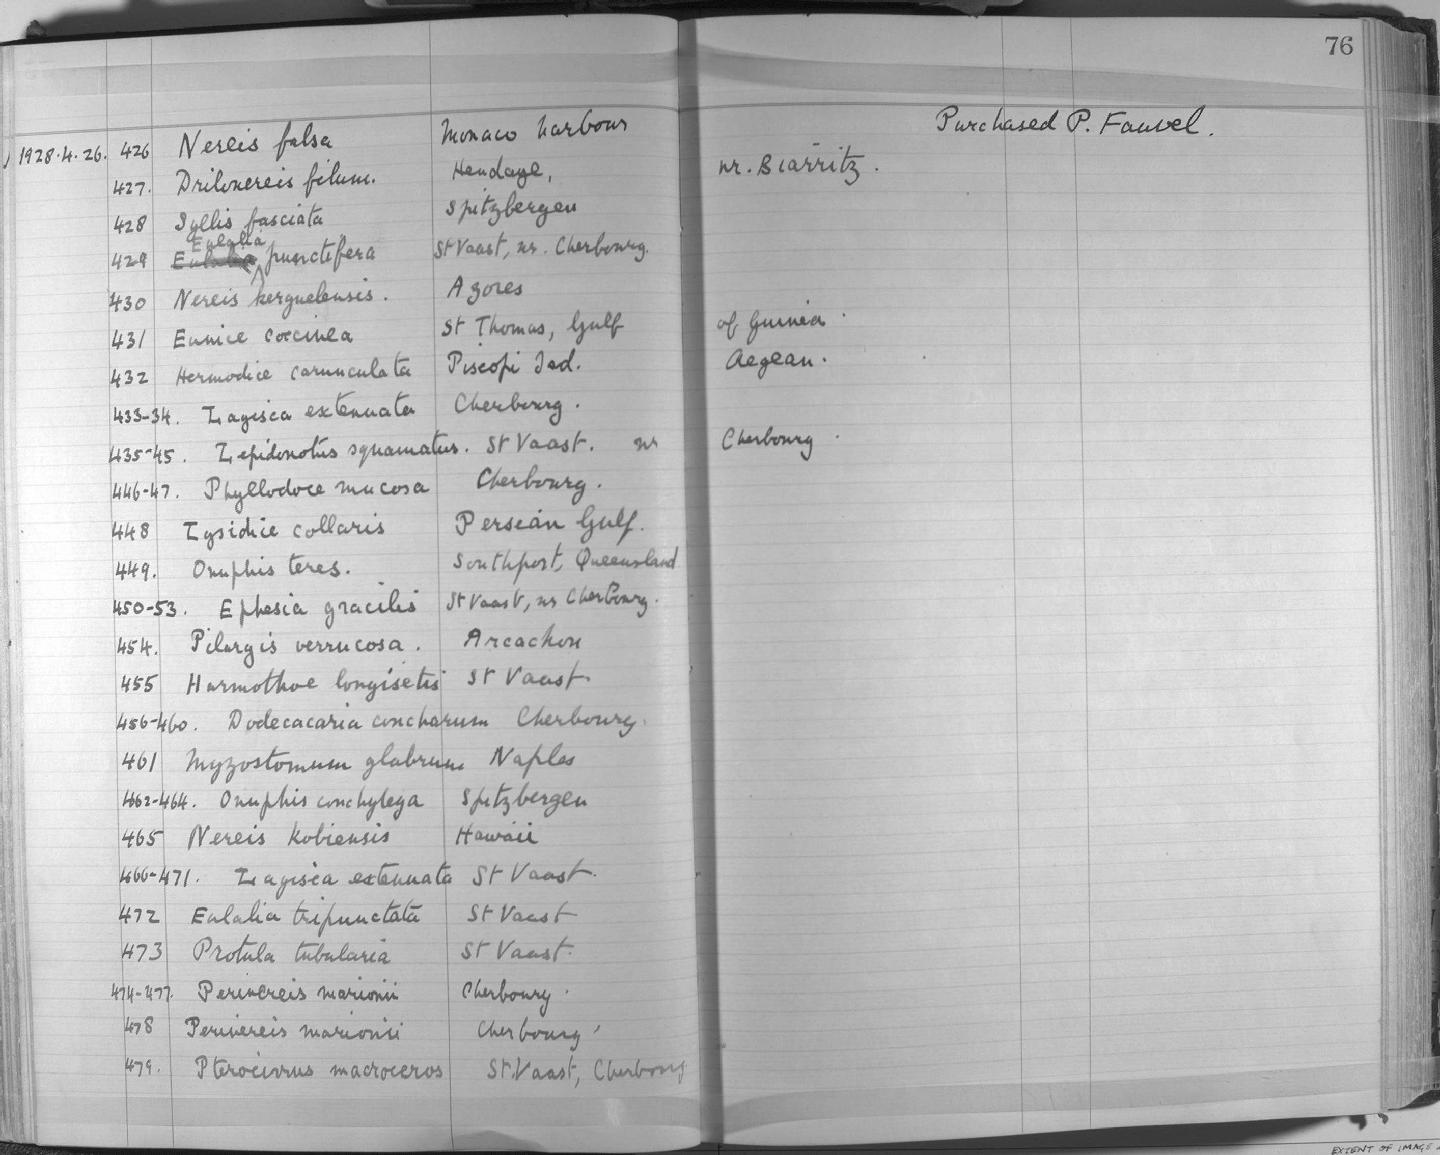 76
Purchased P. Fauvel.
1928.4.26. 426 Nereis falsa Monaco harbour
427. Drilonereis filum. Hendaye, nr. Biarritz.
428 Syllis fasciata Spitzbergen
Eulalia
429 Eulalia punctifera St Vaast, nr. Cherbourg.
430 Nereis kerguelensis. Azores
431 Eunice coccinea St Thomas, Gulf of Guinea.
432 Hermodice carunculata Piscopi Isd. Aegean.
433-34. Lagisca extenuata Cherbourg.
435-45. Lepidonotus squamatus. St Vaast. nr Cherbourg.
446-47. Phyllodoce mucosa Cherbourg.
448 Lysidice collaris Persian Gulf.
449. Onuphis teres. Southport, Queensland
450-53. Ephesia gracilis St Vaast, nr Cherbourg.
454. Pilargis verrucosa. Arcachon
455 Harmothoe longisetis St Vaast.
456-460. Dodecacaria concharum Cherbourg.
461 Myzostomum glabrum Naples
462-464. Onuphis conchylega Spitzbergen
465 Nereis kobiensis Hawaii
466-471. Lagisca extenuata St Vaast.
472 Eulalia tripunctata St Vaast
473 Protula tubularia St Vaast.
474-477. Perinereis marionii Cherbourg.
478 Perinereis marionii Cherbourg
479. Pterocirrus macroceros St Vaast, Cherbourg
EXTENT OF IMAGE